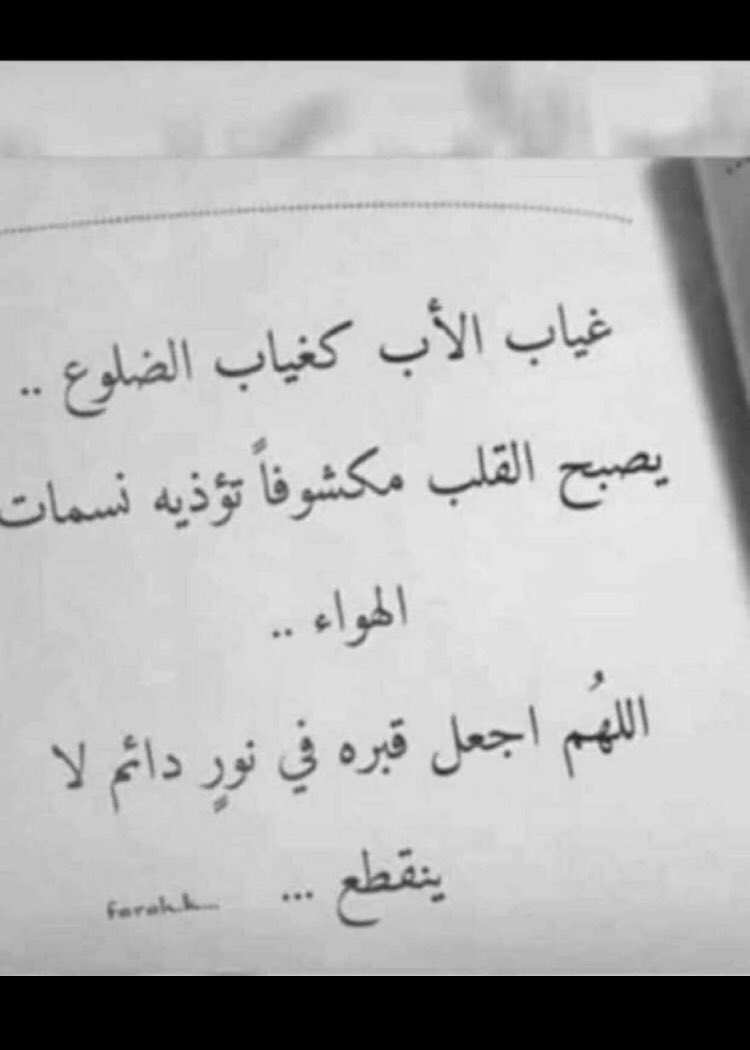 غياب الأب كغياب الضلوع ..
يصبح القلب مكشوفاً تؤذيه نسمات
الهواء ..
اللهُم اجعل قبره في نورٍ دائم لا
ينقطع ... farah.k...